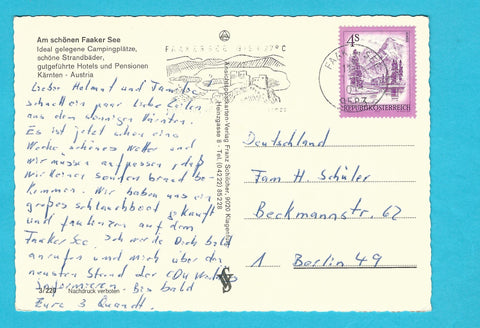 Am schönen Faaker See
Ideal gelegene Campingplätze,
schöne Strandbäder,
gutgeführte Hotels und Pensionen
Kärnten - Austria
Lieber Helmut und Familie
schnell ein paar liebe Zeilen
aus dem sonnigen Kärnten.
Es ist jetzt schon eine
Woche schönes Wetter und
wir müssen aufpassen, daß
wir keinen Sonnenbrand be-
kommen. Wir haben uns ein
großes Schlauchboot gekauft
und faulenzen auf dem
Faaker See. Ich werde Dich bald
anrufen und mich über den
neusten Stand der CDU
informieren. Bis bald
Eure 3 Quandt.
3/220 Nachdruck verboten
FAAKERSEE
27°C
Ansichtspostkarten-Verlag Franz Schilcher, 9020 Klagenfurt
Tel. (04222) 85228
4S
REPUBLIK ÖSTERREICH
Deutschland
Fam H. Schüler
Beckmannstr. 62
1 Berlin 49